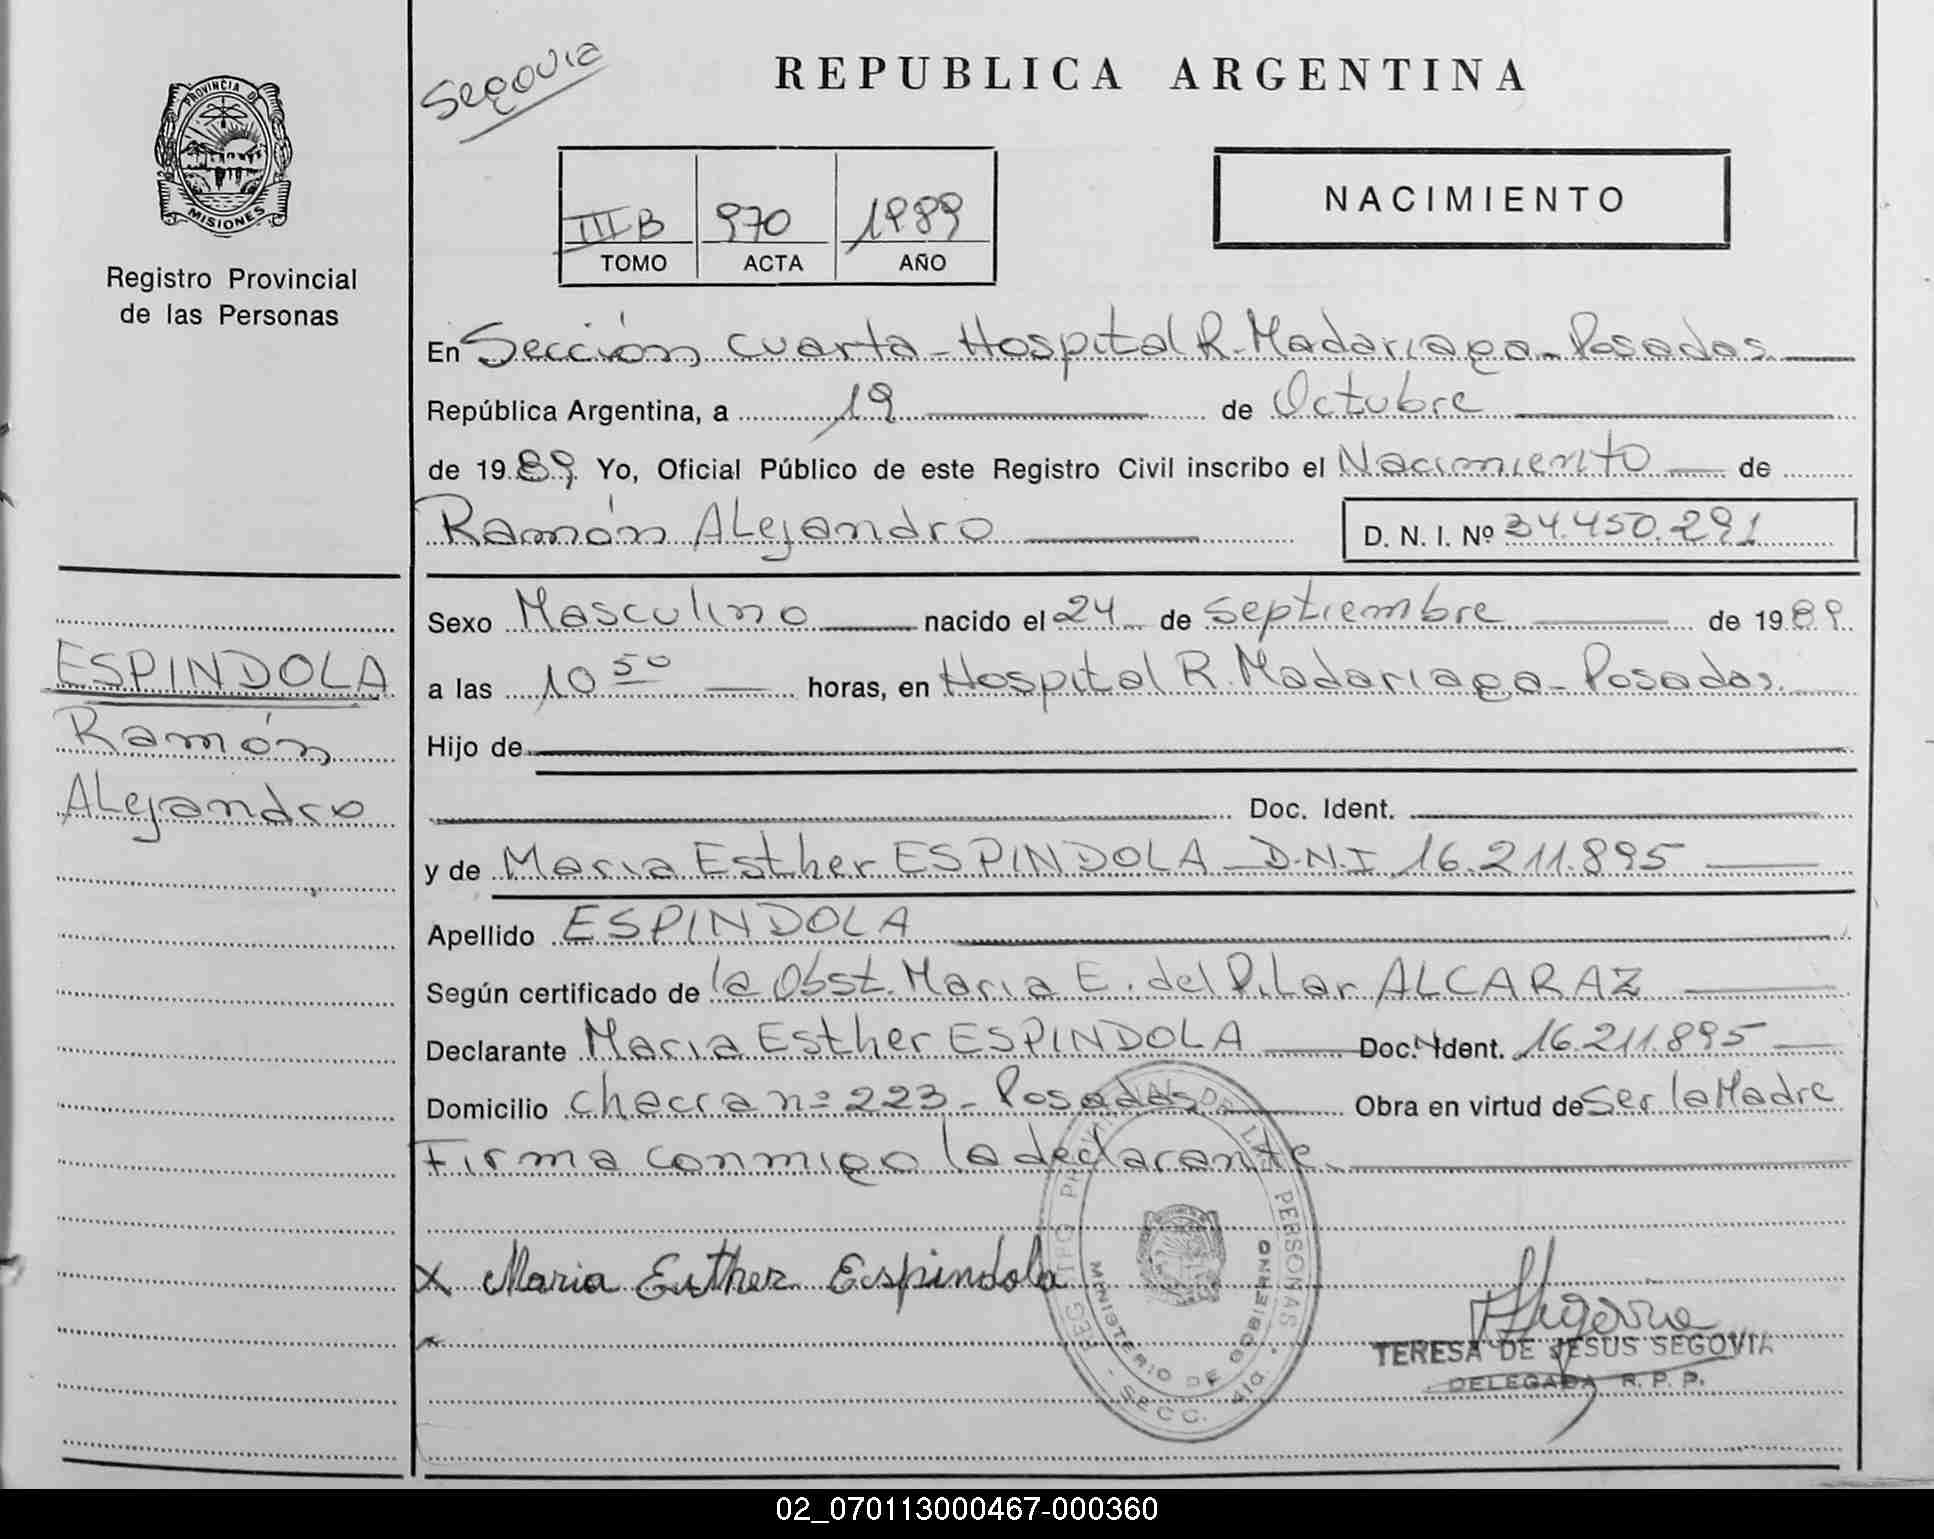 Segovia
REPUBLICA ARGENTINA
PROVINCIA DE
MISIONES
Registro Provincial
de las Personas
IIIB 970 1989
TOMO ACTA AÑO
NACIMIENTO
En Sección cuarta - Hospital R. Madariaga - Posadas
República Argentina, a 19 de Octubre
de 1989 Yo, Oficial Público de este Registro Civil inscribo el Nacimiento de
Ramón Alejandro D. N. I. Nº 34.450.291
Sexo Masculino nacido el 24 de Septiembre de 1989
ESPINDOLA
Ramón
Alejandro
a las 10 50 horas, en Hospital R. Madariaga - Posadas.
Hijo de
Doc. Ident.
y de Maria Esther ESPINDOLA - D.N.I 16.211.895
Apellido ESPINDOLA
Según certificado de la Obst. Maria E. del Pilar ALCARAZ
Declarante Maria Esther ESPINDOLA Doc. Ident. 16.211.895
Domicilio chacra nº 223 - Posadas Obra en virtud de Ser la Madre
Firma conmigo la declarante.
X Maria Esther Espindola
REGISTRO PROVINCIAL DE LAS PERSONAS
MINISTERIO DE GOBIERNO
SECC. 4ta.
Segovia
TERESA DE JESUS SEGOVIA
DELEGADA R. P. P.
02_070113000467-000360